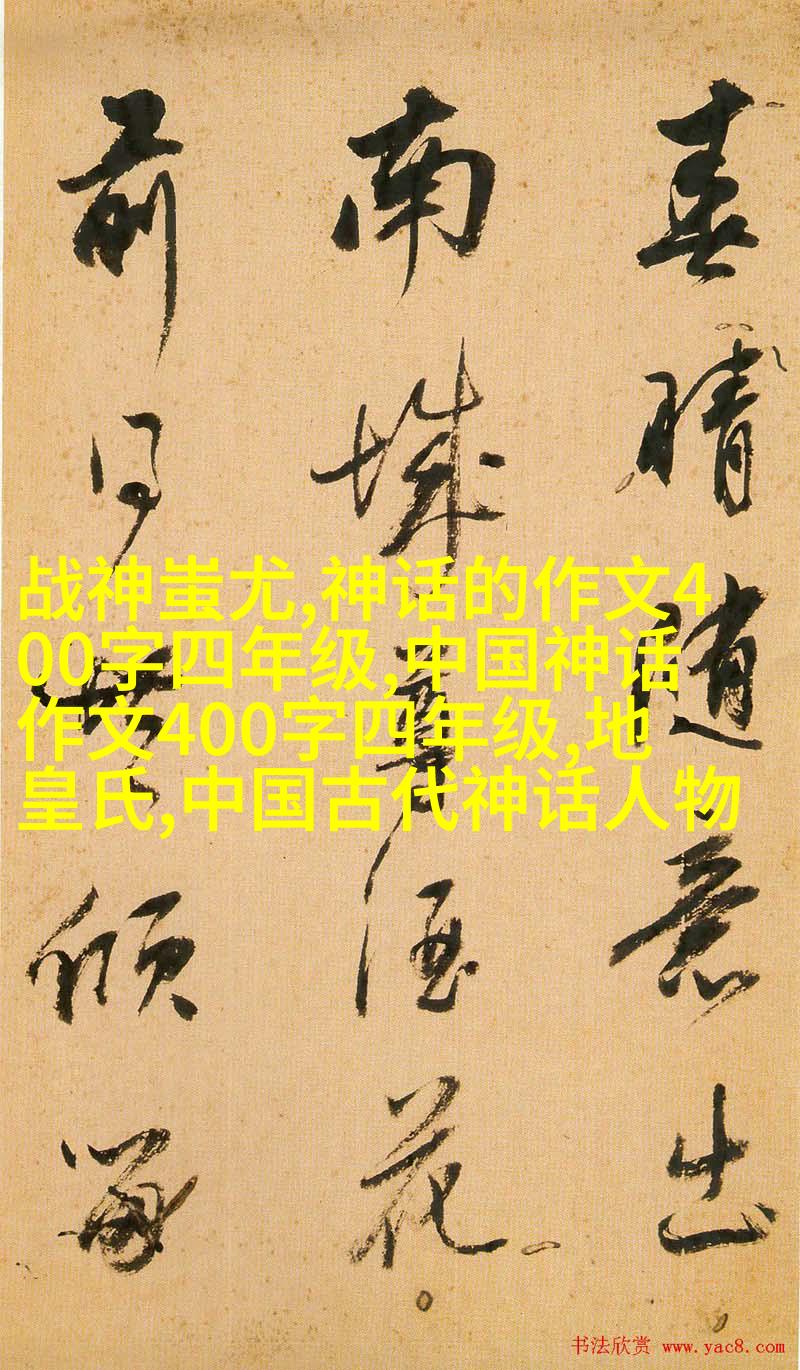 春晴隨意出
南城酒花
前傾
战神蚩尤,神话的作文4
00字四年级,中国神话
作文400字四年级,地
皇氏,中国古代神话人物
书法欣赏 www.yac8.com